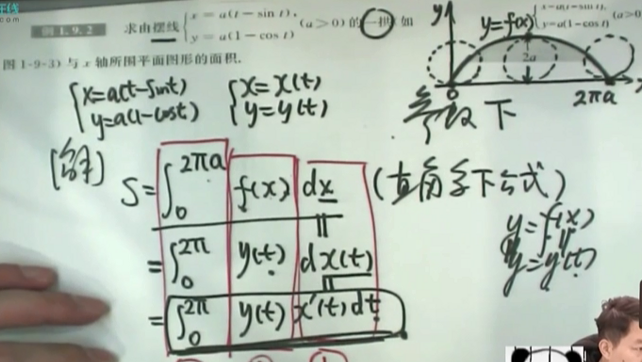 在线
例 1.9.2 求由摆线 { x = a(t - sin t), y = a(1 - cos t) (a>0) 的一拱(如
图 1-9-3) 与 x 轴所围平面图形的面积.
{ x=a(t-sint) y=a(1-cost) { x=x(t) y=y(t)
y y=f(x) x=a(t-sin t), y=a(1-cos t) (a>0)
2a
0 2πa x
参数下
[解] S = ∫ 0 2πa f(x) dx (直角系下公式)
y=f(x)
= ∫ 0 2π y(t) dx(t) y=y(t)
= ∫ 0 2π y(t) x'(t)dt